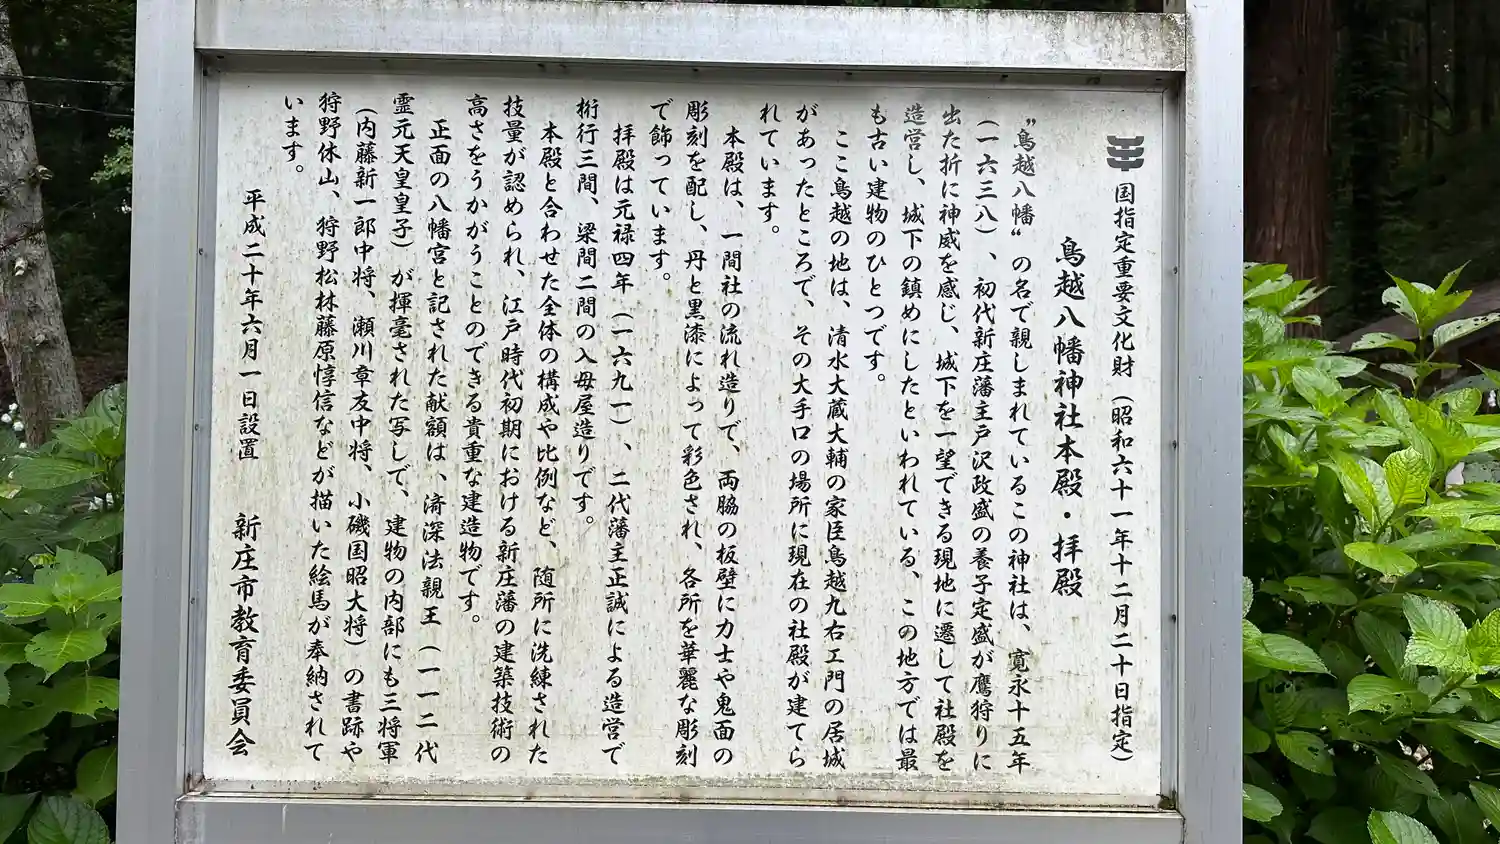 国指定重要文化財(昭和六十一年十二月二十日指定)
鳥越八幡神社本殿・拝殿
〝鳥越八幡〟の名で親しまれているこの神社は、寛永十五年
(一六三八)、初代新庄藩主戸沢政盛の養子定盛が鷹狩りに
出た折に神威を感じ、城下を一望できる現地に遷して社殿を
造営し、城下の鎮めにしたといわれている、この地方では最
も古い建物のひとつです。
ここ鳥越の地は、清水大蔵大輔の家臣鳥越九右エ門の居城
があったところで、その大手口の場所に現在の社殿が建てら
れています。
本殿は、一間社の流れ造りで、両脇の板壁に力士や鬼面の
彫刻を配し、丹と黒漆によって彩色され、各所を華麗な彫刻
で飾っています。
拝殿は元禄四年(一六九一)、二代藩主正誠による造営で
桁行三間、梁間二間の入母屋造りです。
本殿と合わせた全体の構成や比例など、随所に洗練された
技量が認められ、江戸時代初期における新庄藩の建築技術の
高さをうかがうことのできる貴重な建造物です。
正面の八幡宮と記された献額は、済深法親王(一一二代
霊元天皇皇子)が揮毫された写しで、建物の内部にも三将軍
(内藤新一郎中将、瀬川章友中将、小磯国昭大将)の書跡や
狩野休山、狩野松林藤原惇信などが描いた絵馬が奉納されて
います。
平成二十年六月一日設置 新庄市教育委員会